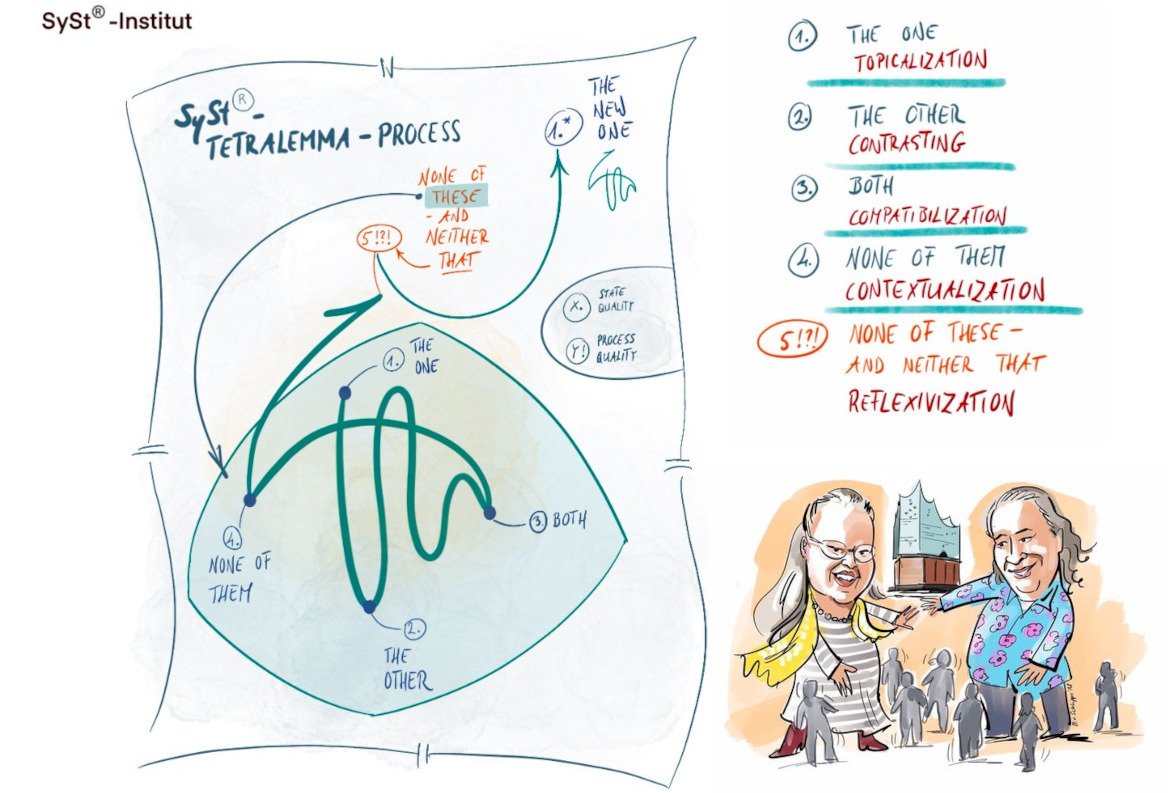 SySt® -Institut
SySt® -
TETRALEMMA - PROCESS
1.*
THE
NEW
ONE
NONE OF
THESE
- AND
NEITHER
THAT
5!?!
X. STATE
QUALITY
Y! PROCESS
QUALITY
1. THE
ONE
3. BOTH
4.
NONE OF
THEM
2.
THE
OTHER
1. THE ONE
TOPICALIZATION
2. THE OTHER
CONTRASTING
3. BOTH
COMPATIBILIZATION
4. NONE OF THEM
CONTEXTUALIZATION
5!?! NONE OF THESE -
AND NEITHER THAT
REFLEXIVIZATION